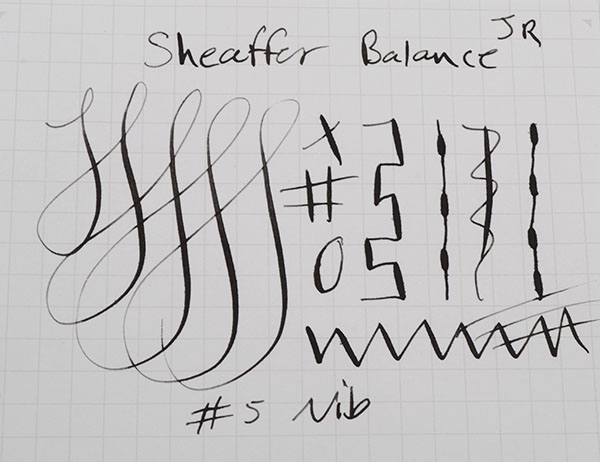 Sheaffer Balance JR
X
#
O
#5 Nib